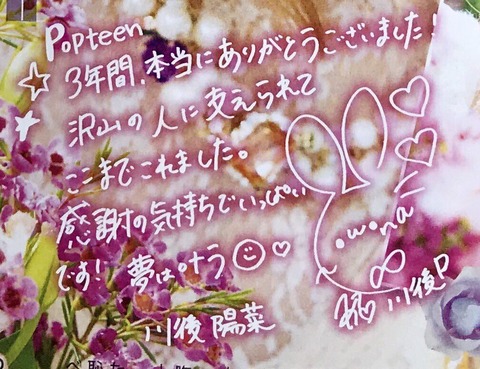 Popteen
3年間、本当にありがとうございました!
沢山の人に支えられて
ここまでこれました。
感謝の気持ちでいっぱい
です! 夢は叶う
川後 陽菜
川後P